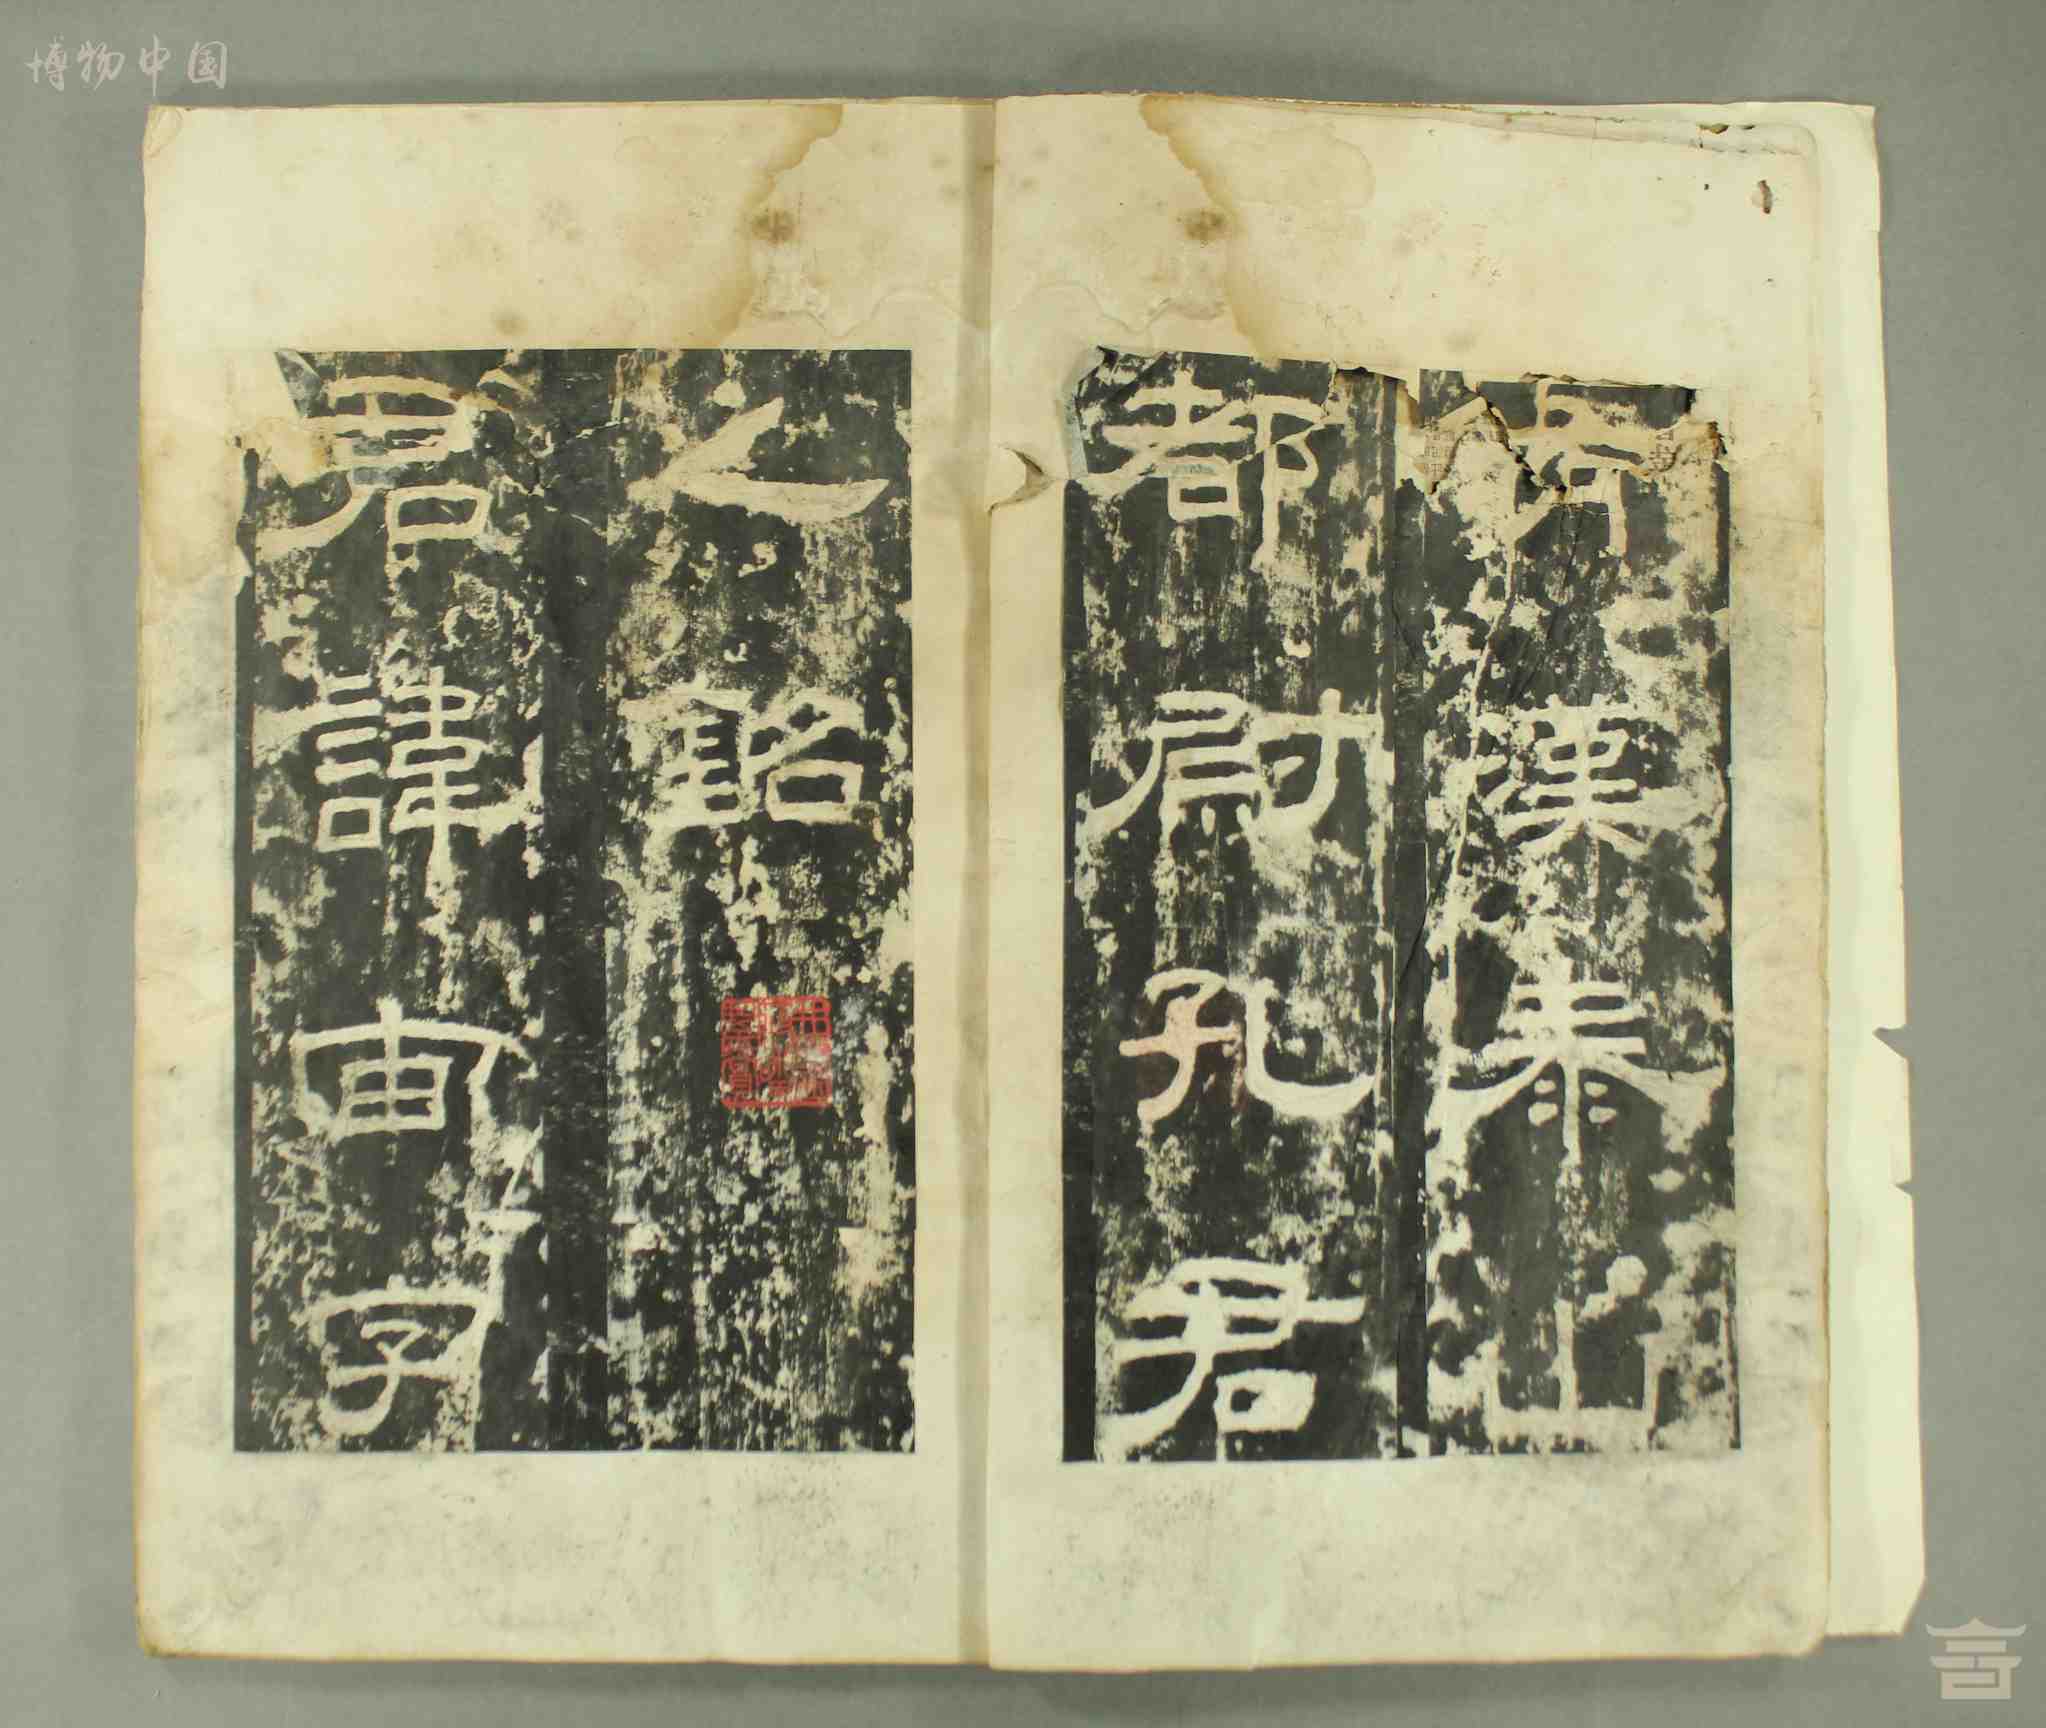 博物中国
有漢泰山
都尉孔君
之銘
君諱宙字